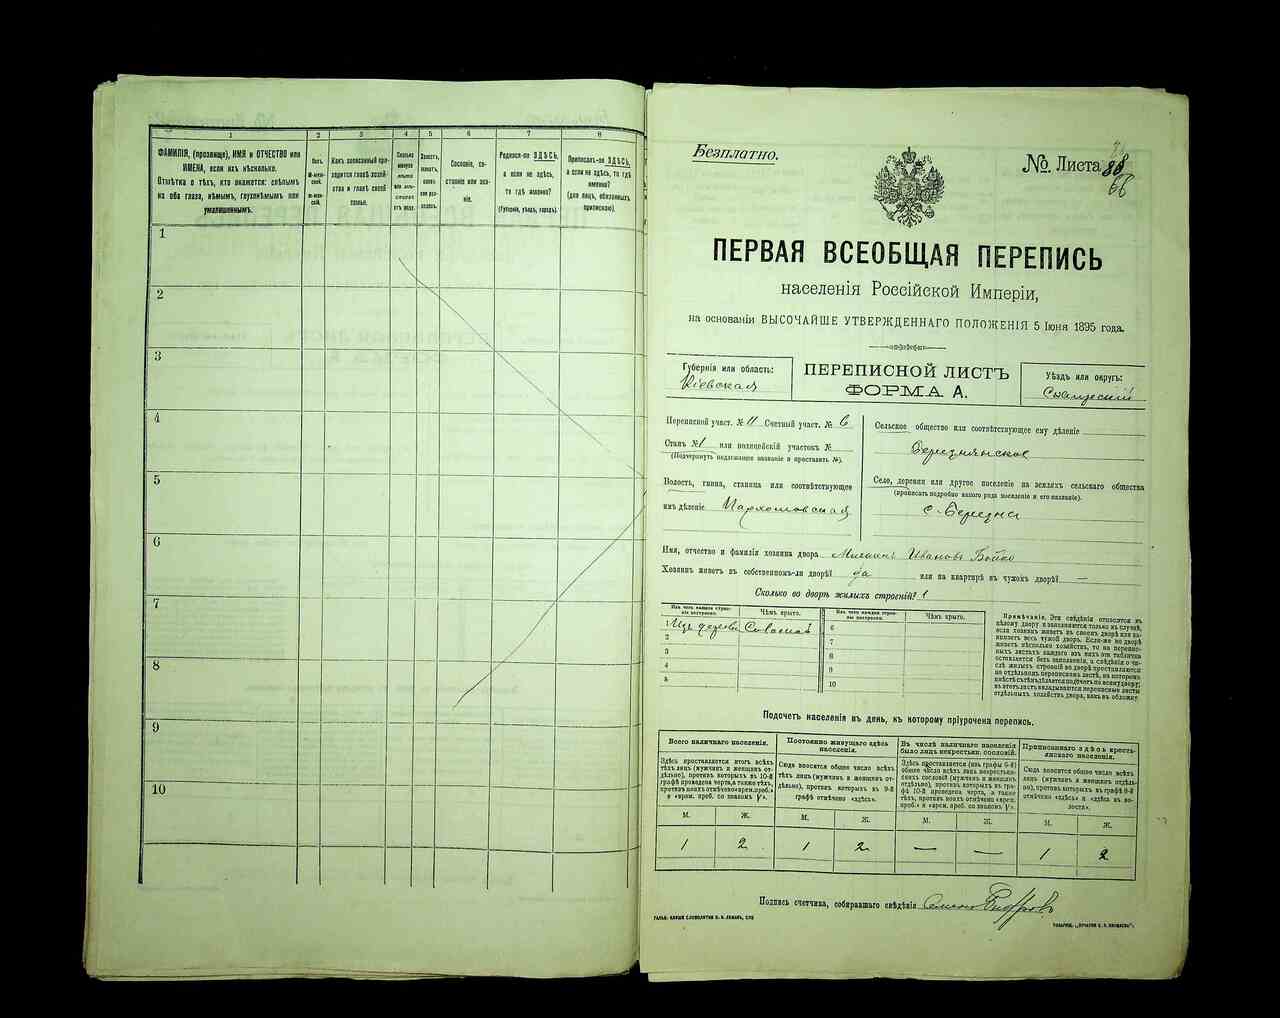 1
2
3
4
5
6
7
8
ФАМИЛІЯ, (прозвище), ИМЯ и ОТЧЕСТВО или
ИМЕНА, если ихъ нѣсколько.
Отмѣтка о тѣхъ, кто окажется: слѣпымъ
на оба глаза, нѣмымъ, глухонѣмымъ или
умалишеннымъ.
Полъ.
М-мужской.
Ж-женскій.
Какъ записанный приходится главѣ хозяйства и главѣ своей семьи.
Сколько минуло лѣтъ или мѣсяцевъ отъ роду.
Холостъ, женатъ, вдовъ или разведенъ.
Сословіе, состояніе или званіе.
Родился-ли ЗДѢСЬ,
а если не здѣсь,
то гдѣ именно?
(Губернія, уѣздъ, городъ).
Приписанъ-ли ЗДѢСЬ,
а если не здѣсь, то гдѣ
именно?
(для лицъ, обязанныхъ
припискою).
1
2
3
4
5
6
7
8
9
10
Безплатно.
№ Листа 88
66
ПЕРВАЯ ВСЕОБЩАЯ ПЕРЕПИСЬ
населенія Россійской Имперіи,
на основаніи ВЫСОЧАЙШЕ УТВЕРЖДЕННАГО ПОЛОЖЕНІЯ 5 Іюня 1895 года.
Губернія или область:
Кіевская
ПЕРЕПИСНОЙ ЛИСТЪ
ФОРМА А.
Уѣздъ или округъ:
Сквирскій
Переписной участ. № 11 Счетный участ. № 6
Станъ № 1 или полицейскій участокъ №
(Подчеркнуть надлежащее названіе и проставить №).
Волость, гмина, станица или соотвѣтствующее
имъ дѣленіе Пархомовская
Сельское общество или соотвѣтствующее ему дѣленіе
Березнянское
Село, деревня или другое поселеніе на земляхъ сельскаго общества
(прописать подробно какого рода поселеніе и его названіе).
с. Березна
Имя, отчество и фамилія хозяина двора Михаилъ Ивановъ Бойко
Хозяинъ живетъ въ собственномъ-ли дворѣ? да или на квартирѣ въ чужомъ дворѣ? —
Сколько во дворѣ жилыхъ строеній? 1
Изъ чего каждое строеніе построено.
Чѣмъ крыто.
Изъ чего каждое строеніе построено.
Чѣмъ крыто.
Изъ дерева Соломой
2
3
4
5
6
7
8
9
10
Примѣчаніе. Эти свѣдѣнія относятся къ
цѣлому двору и заполняются только въ случаѣ,
если хозяинъ живетъ въ своемъ дворѣ или нанимаетъ весь чужой дворъ. Если-же во дворѣ
живетъ нѣсколько хозяйствъ, то на переписныхъ листахъ каждаго изъ нихъ эта табличка
оставляется безъ заполненія, а свѣдѣнія о числѣ жилыхъ строеній во дворѣ проставляются
на отдѣльномъ переписномъ листѣ, на которомъ
Подсчетъ населенія въ день, къ которому пріурочена перепись.
Всего наличнаго населенія.
Постоянно живущаго здѣсь населенія.
Въ числѣ наличнаго населенія было лицъ некрестьян. сословій.
Приписаннаго здѣсь крестьянскаго населенія.
Здѣсь проставляется итогъ всѣхъ
тѣхъ лицъ (мужчинъ и женщинъ отдѣльно), противъ которыхъ въ 10-й
графѣ проведена черта, а также тѣхъ,
противъ коихъ отмѣчено «врем. преб.»
и «врем. преб. со знакомъ V».
Сюда вносится общее число всѣхъ
тѣхъ лицъ (мужчинъ и женщинъ отдѣльно), противъ которыхъ въ 9-й
графѣ отмѣчено «здѣсь».
Здѣсь проставляется (изъ графы 6-й)
общее число всѣхъ лицъ некрестьянскихъ сословій (мужчинъ и женщинъ
отдѣльно), противъ которыхъ въ графѣ 10-й проведена черта, а также
тѣхъ, противъ коихъ отмѣчено «врем.
преб.» и «врем. преб. со знакомъ V».
Сюда вносится общее число всѣхъ
лицъ (мужчинъ и женщинъ отдѣльно), противъ которыхъ въ графѣ 9-й
отмѣчено «здѣсь» и «здѣсь въ волости».
М. Ж. М. Ж. М. Ж. М. Ж.
1 2 1 2 — — 1 2
Подпись счетчика, собиравшаго свѣдѣнія Семенъ